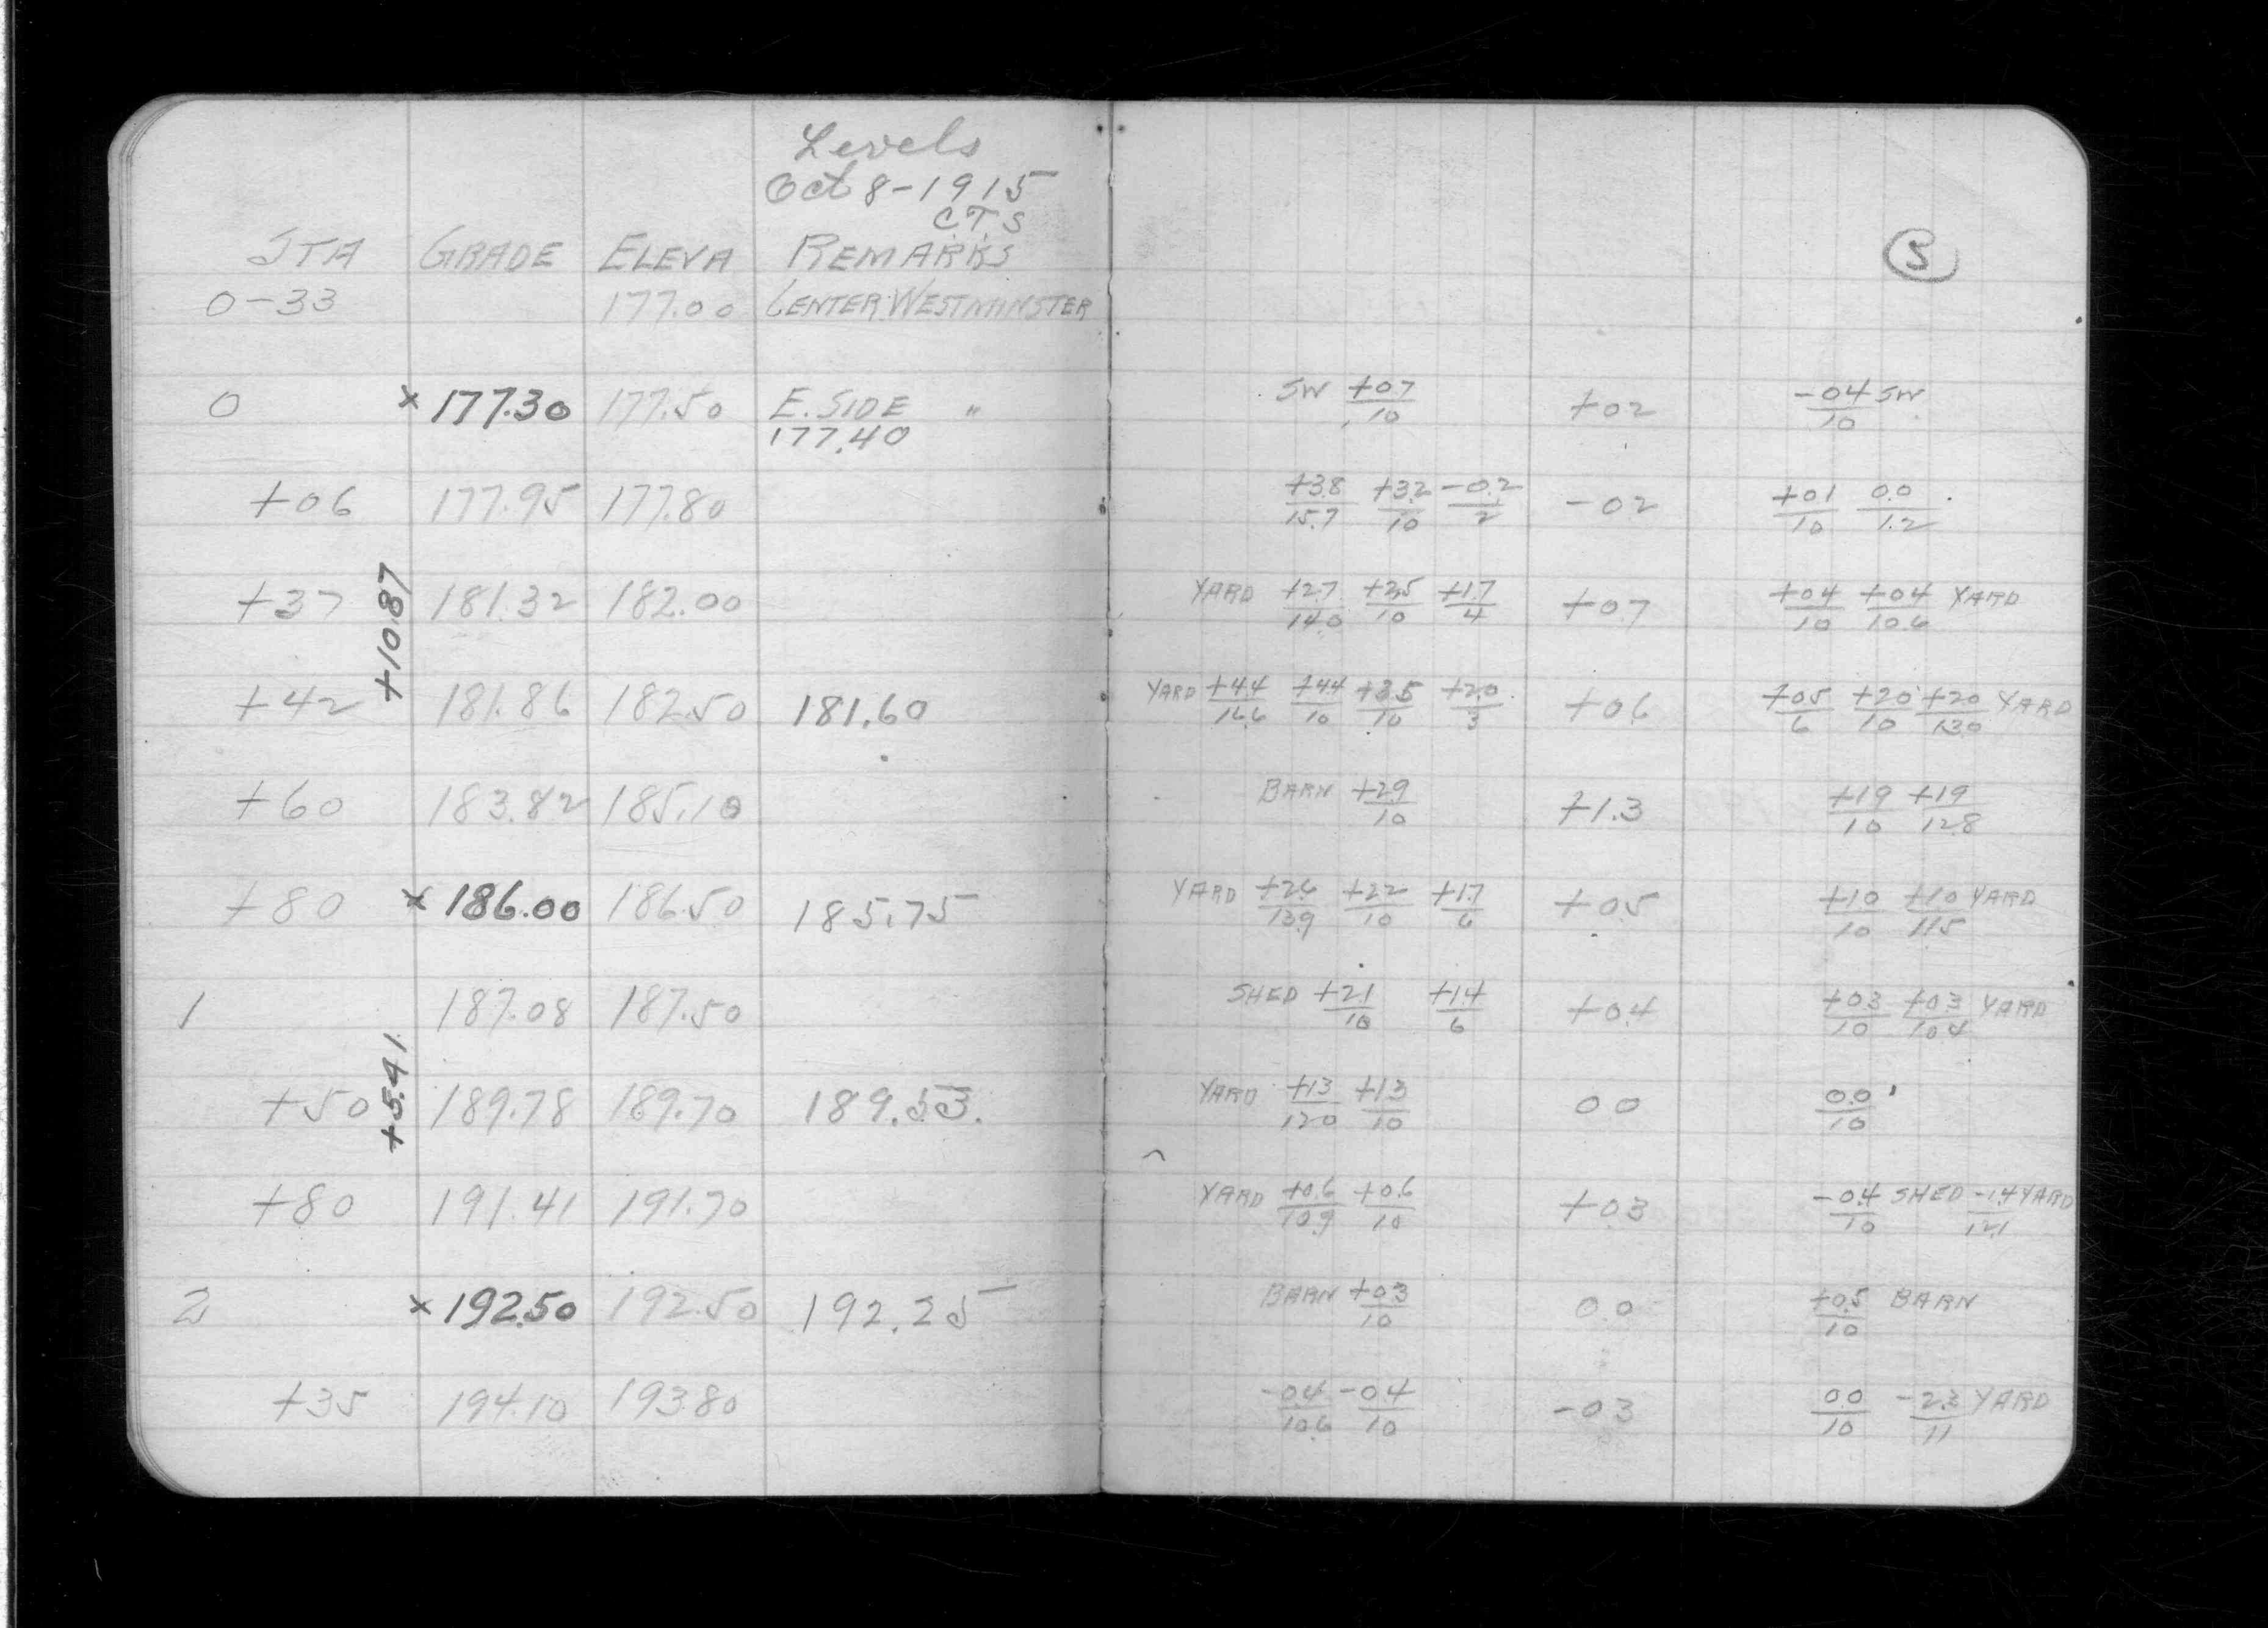 Levels
Oct 8-1915
C.T.S
STA GRADE ELEVA REMARKS
(5)
0-33 177.00 CENTER WESTMINSTER
0 x 177.30 177.50 E. SIDE "
177.40
SW +0.7/10 +0.2 -0.4/10 SW
+06 177.95 177.80
+3.8/15.7 +3.2/10 -0.2/2 -0.2 +0.1/10 0.0/1.2
+10.87
+37 181.32 182.00
YARD +2.7/14.0 +2.5/10 +1.7/4 +0.7 +0.4/10 +0.4/10.6 YARD
+42 181.86 182.50 181.60
YARD +4.4/16.6 +4.4/10 +3.5/10 +2.0/3 +0.6 +0.5/6 +2.0/10 +2.0/13.0 YARD
+60 183.82 185.10
BARN +2.9/10 +1.3 +1.9/10 +1.9/12.8
+80 x 186.00 186.50 185.75
YARD +2.6/13.9 +2.2/10 +1.7/6 +0.5 +1.0/10 +1.0/11.5 YARD
1 187.08 187.50
SHED +2.1/10 +1.4/6 +0.4 +0.3/10 +0.3/10.4 YARD
+5.41
+50 189.78 189.70 189.53.
YARD +1.3/12.0 +1.3/10 0.0 0.0/10
+80 191.41 191.70
YARD +0.6/10.9 +0.6/10 +0.3 -0.4/10 SHED -1.4/12.1 YARD
2 x 192.50 192.50 192.25
BARN +0.3/10 0.0 +0.5/10 BARN
+35 194.10 193.80
-0.4/10.6 -0.4/10 -0.3 0.0/10 -2.3/11 YARD